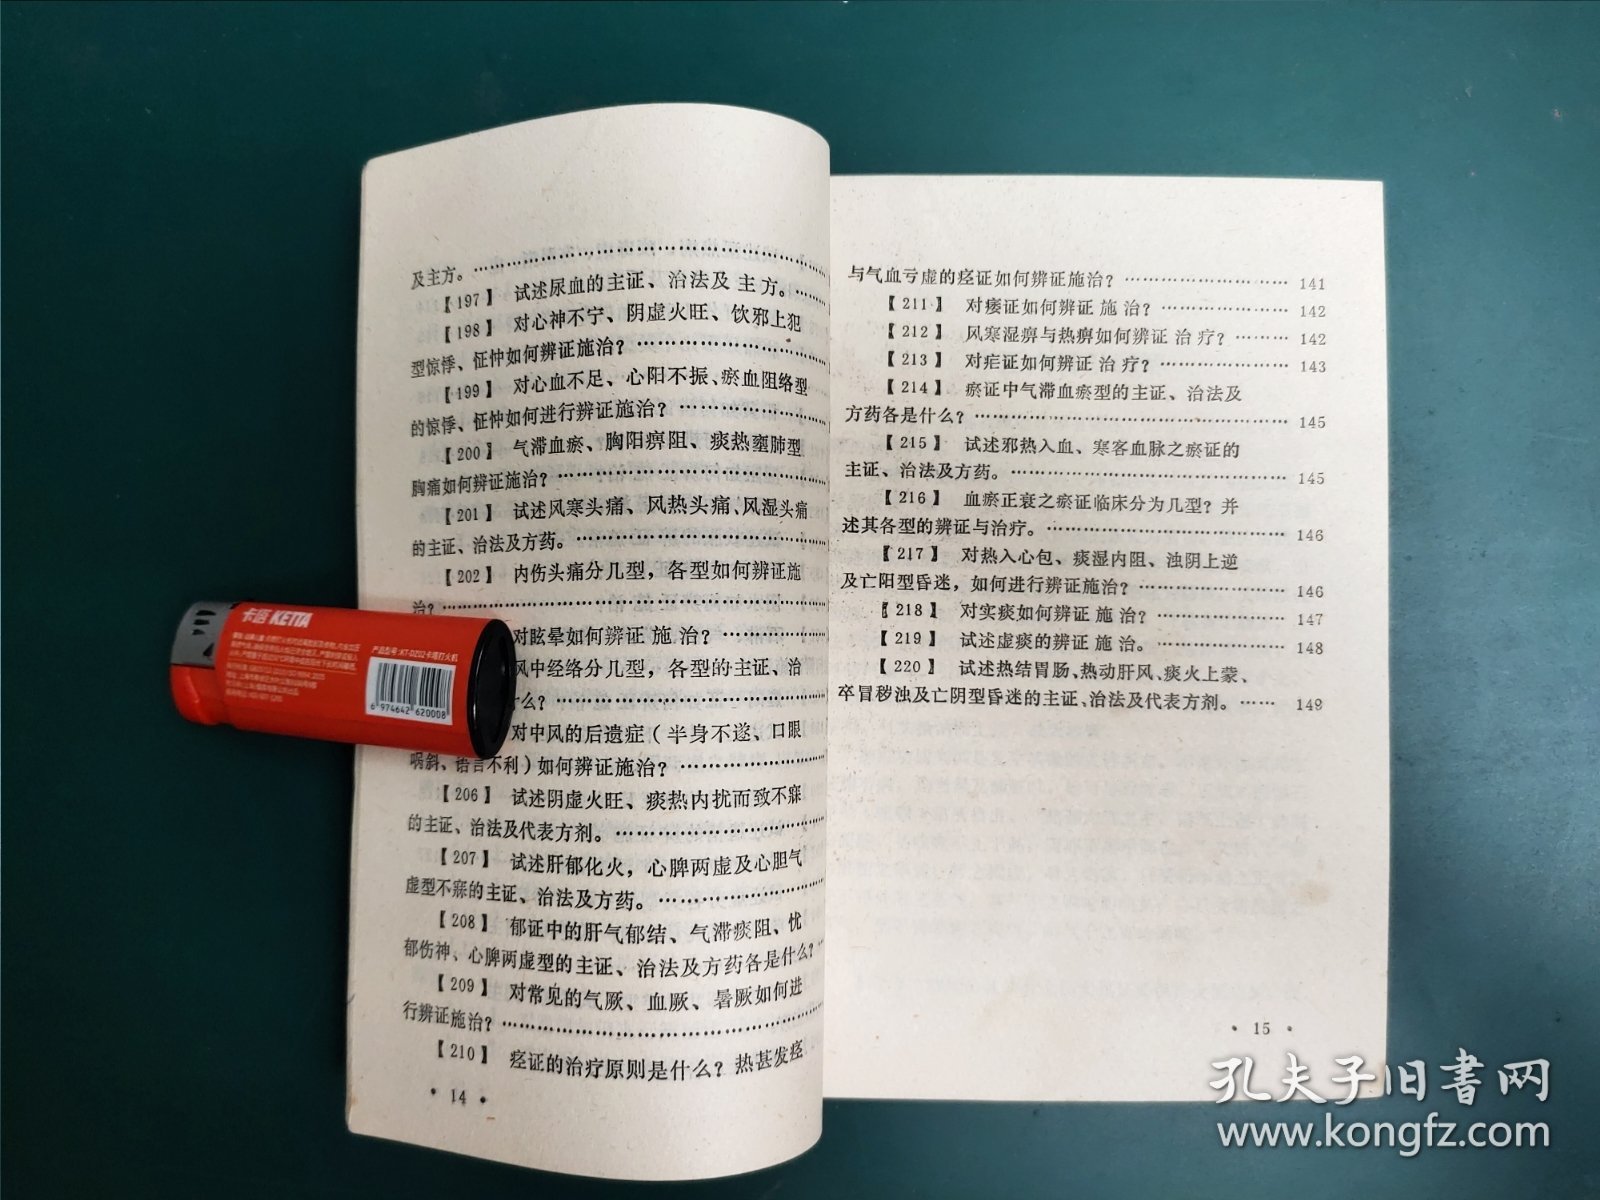 及主方。……………………………………
【197】 试述尿血的主证、治法及主方。……
【198】 对心神不宁、阴虚火旺、饮邪上犯
型惊悸、怔忡如何辨证施治？……………………
【199】 对心血不足、心阳不振、瘀血阻络型
的惊悸、怔忡如何进行辨证施治？………………
【200】 气滞血瘀、胸阳痹阻、痰热壅肺型
胸痛如何辨证施治？………………………………
【201】 试述风寒头痛、风热头痛、风湿头痛
的主证、治法及方药。……………………………
【202】 内伤头痛分几型，各型如何辨证施
治？…………………………………………………
对眩晕如何辨证施治？……………
风中经络分几型，各型的主证、治
什么？……………………………………
对中风的后遗症（半身不遂、口眼
㖞斜、语言不利）如何辨证施治？………………
【206】 试述阴虚火旺、痰热内扰而致不寐
的主证、治法及代表方剂。………………………
【207】 试述肝郁化火，心脾两虚及心胆气
虚型不寐的主证、治法及方药。…………………
【208】 郁证中的肝气郁结、气滞痰阻、忧
郁伤神、心脾两虚型的主证、治法及方药各是什么？…
【209】 对常见的气厥、血厥、暑厥如何进
行辨证施治？………………………………………
【210】 痉证的治疗原则是什么？热甚发痉
• 14 •
与气血亏虚的痉证如何辨证施治？…………………… 141
【211】 对痿证如何辨证施治？………………… 142
【212】 风寒湿痹与热痹如何辨证治疗？……… 142
【213】 对疟证如何辨证治疗？………………… 143
【214】 瘀证中气滞血瘀型的主证、治法及
方药各是什么？………………………………………… 145
【215】 试述邪热入血、寒客血脉之瘀证的
主证、治法及方药。…………………………………… 145
【216】 血瘀正衰之瘀证临床分为几型？并
述其各型的辨证与治疗。……………………………… 146
【217】 对热入心包、痰湿内阻、浊阴上逆
及亡阳型昏迷，如何进行辨证施治？………………… 146
【218】 对实痰如何辨证施治？………………… 147
【219】 试述虚痰的辨证施治。………………… 148
【220】 试述热结胃肠、热动肝风、痰火上蒙、
卒冒秽浊及亡阴型昏迷的主证、治法及代表方剂。…… 149
• 15 •
卡塔 KETTA
产品型号:KT-DZ02卡塔打火机
6 974642 620008
孔夫子旧书网
www.kongfz.com